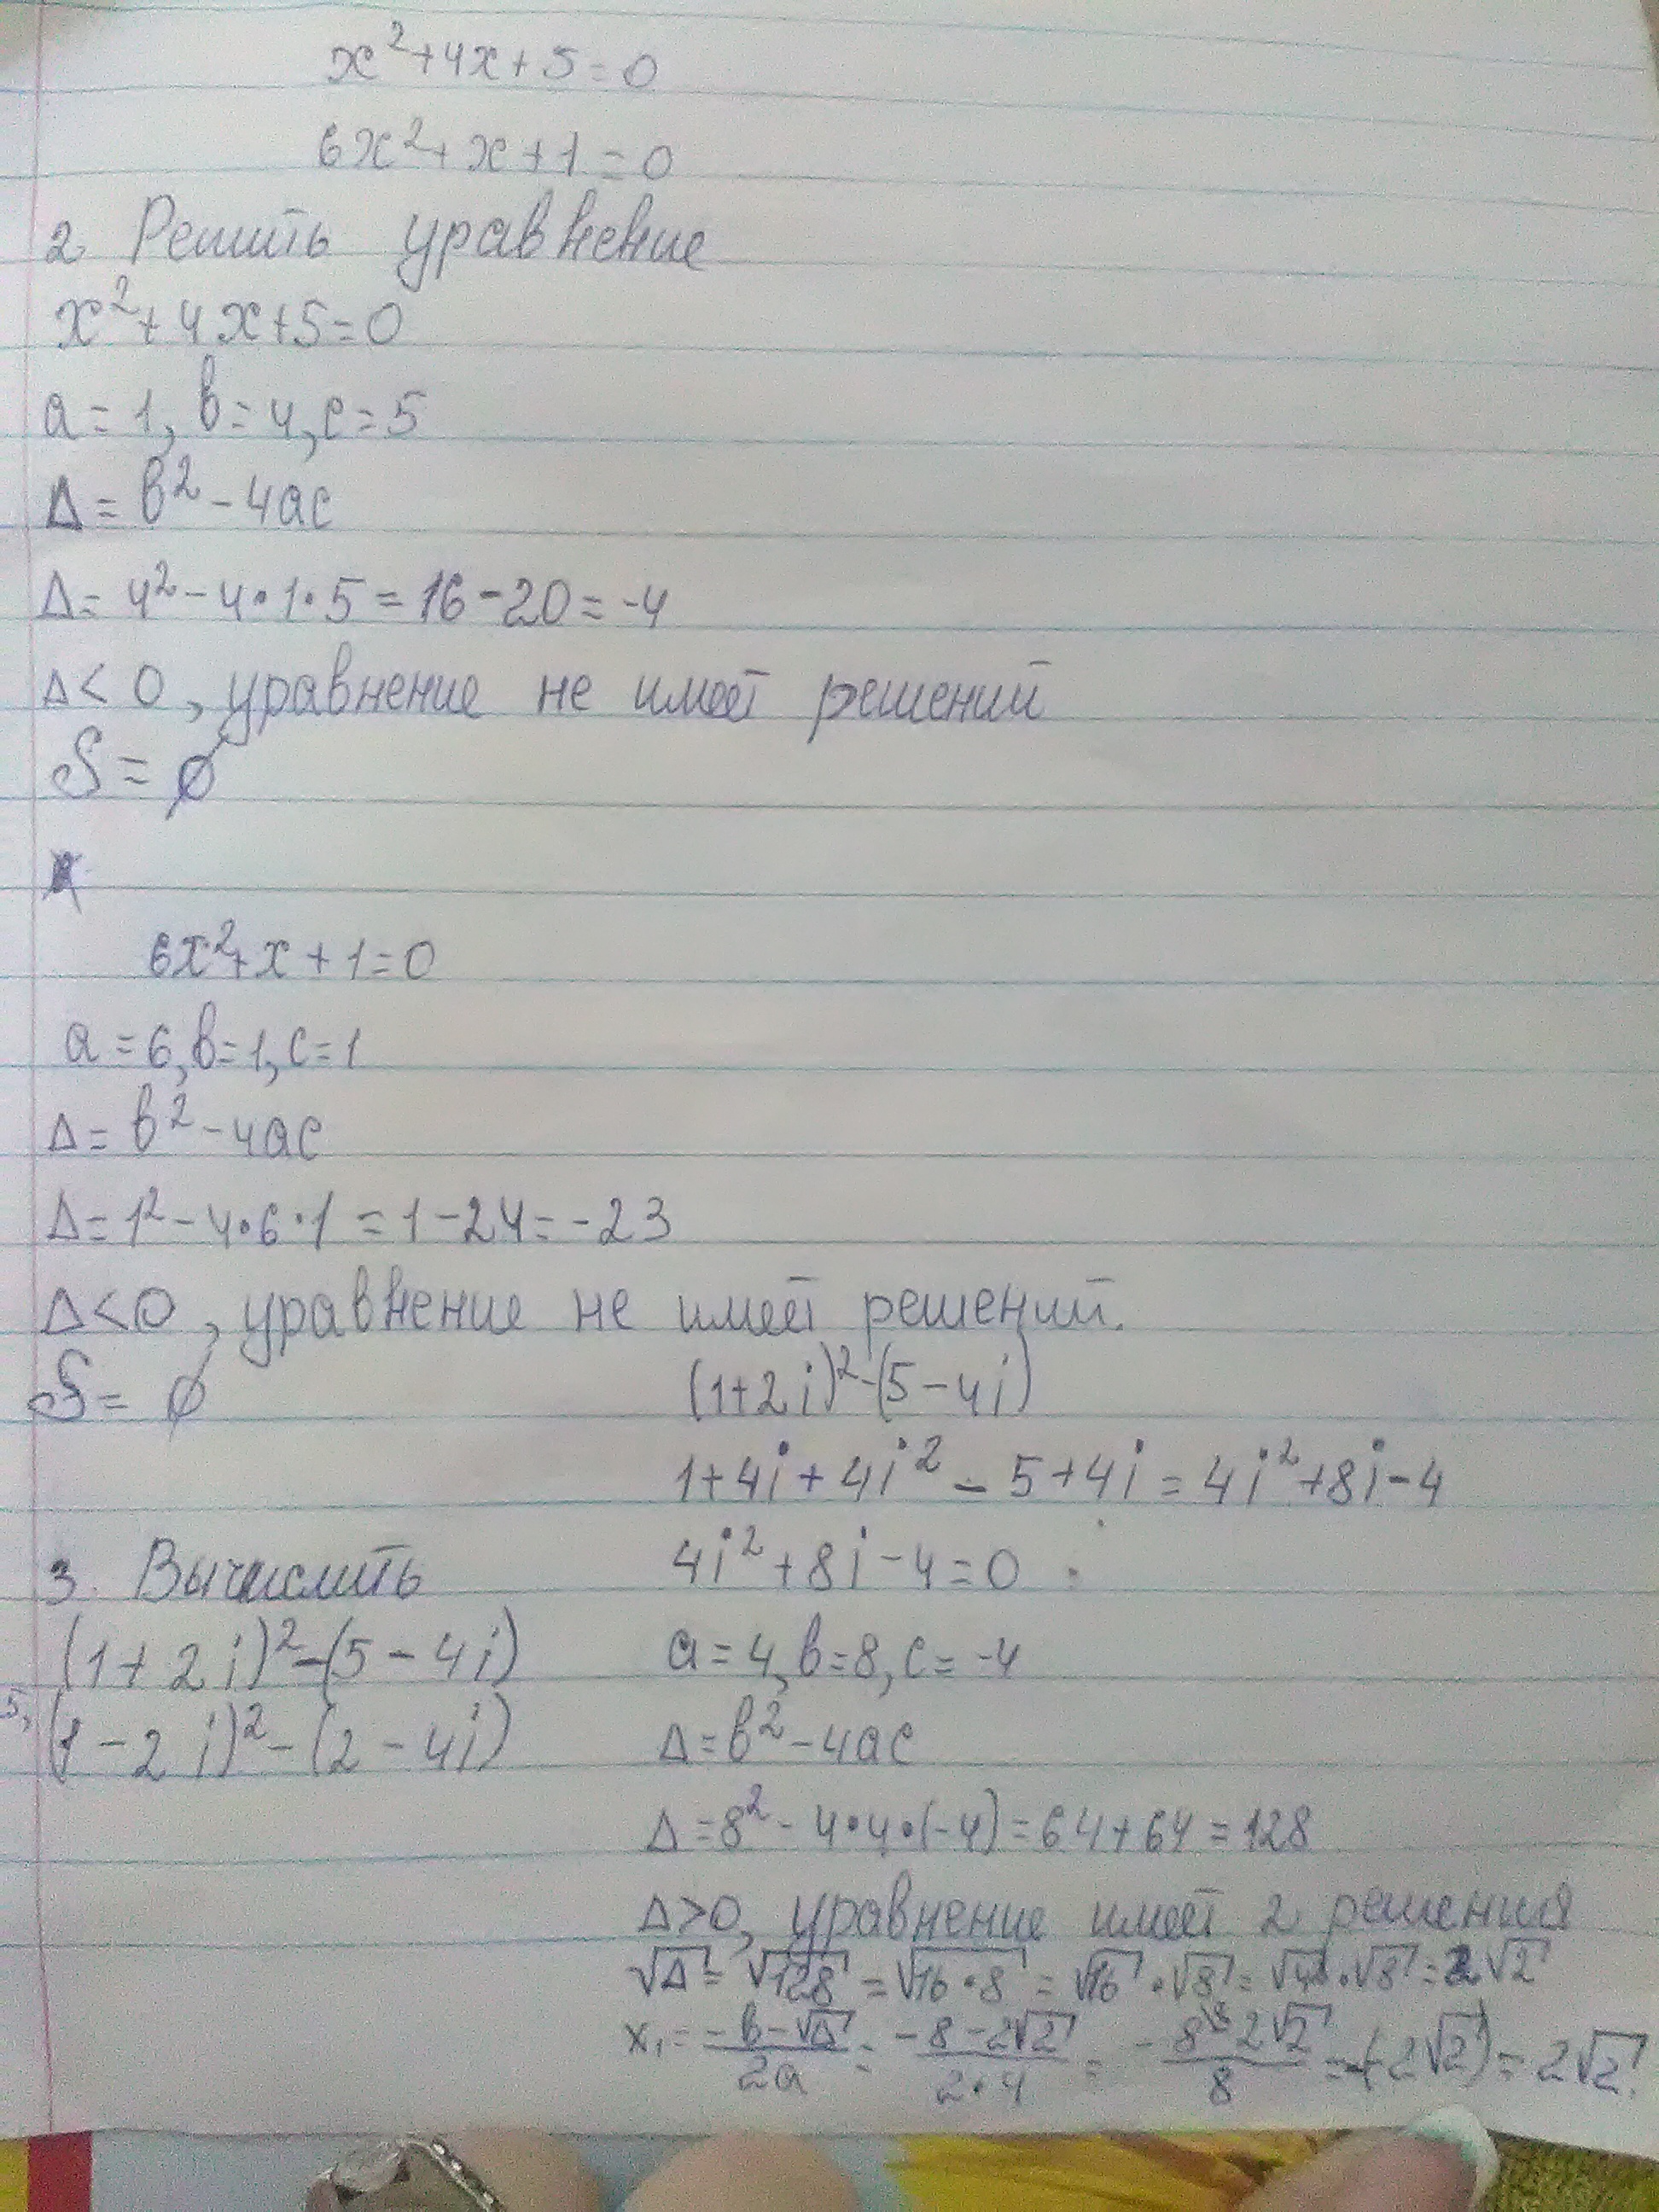 x²+4x+5=0
6x²+x+1=0
2 Решить уравнение
x²+4x+5=0
a=1, b=4, c=5
Δ=b²-4ac
Δ=4²-4•1•5=16-20=-4
Δ<0, уравнение не имеет решений
S=∅
6x²+x+1=0
a=6, b=1, c=1
Δ=b²-4ac
Δ=1²-4•6•1=1-24=-23
Δ<0, уравнение не имеет решений.
S=∅
3. Вычислить
(1+2i)²-(5-4i)
5, (1-2i)²-(2-4i)
(1+2i)²-(5-4i)
1+4i+4i²-5+4i=4i²+8i-4
4i²+8i-4=0
a=4, b=8, c=-4
Δ=b²-4ac
Δ=8²-4•4•(-4)=64+64=128
Δ>0, уравнение имеет 2 решения
√Δ=√128=√16•8=√16•√8=√4•√8=2√2
x₁=(-b-√Δ)/2a=(-8-2√2)/2•4=-(8-2√2)/8=-(-2√2)=2√2